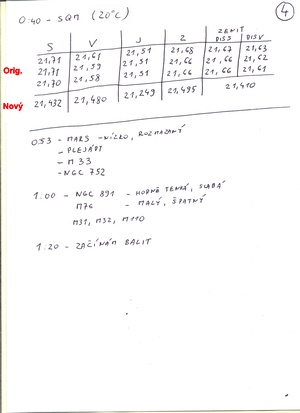 4
0:40 - SQM (20°C)
ZENIT
S V J Z DISS DISV
21,71 21,61 21,51 21,68 21,67 21,63
Orig. 21,71 21,59 21,51 21,66 21,66 21,62
21,70 21,58 21,51 21,66 21,66 21,61
Nový 21,432 21,480 21,249 21,495 21,410
0:53 - MARS - NÍZKO, ROZMAZANÝ
- PLEJÁDY
- M 33
- NGC 752
1:00 - NGC 891 - HODNĚ TENKÁ, SLABÁ
M76 - MALÝ, ŠPATNÝ
M31, M32, M110
1:20 - ZAČÍNÁM BALIT